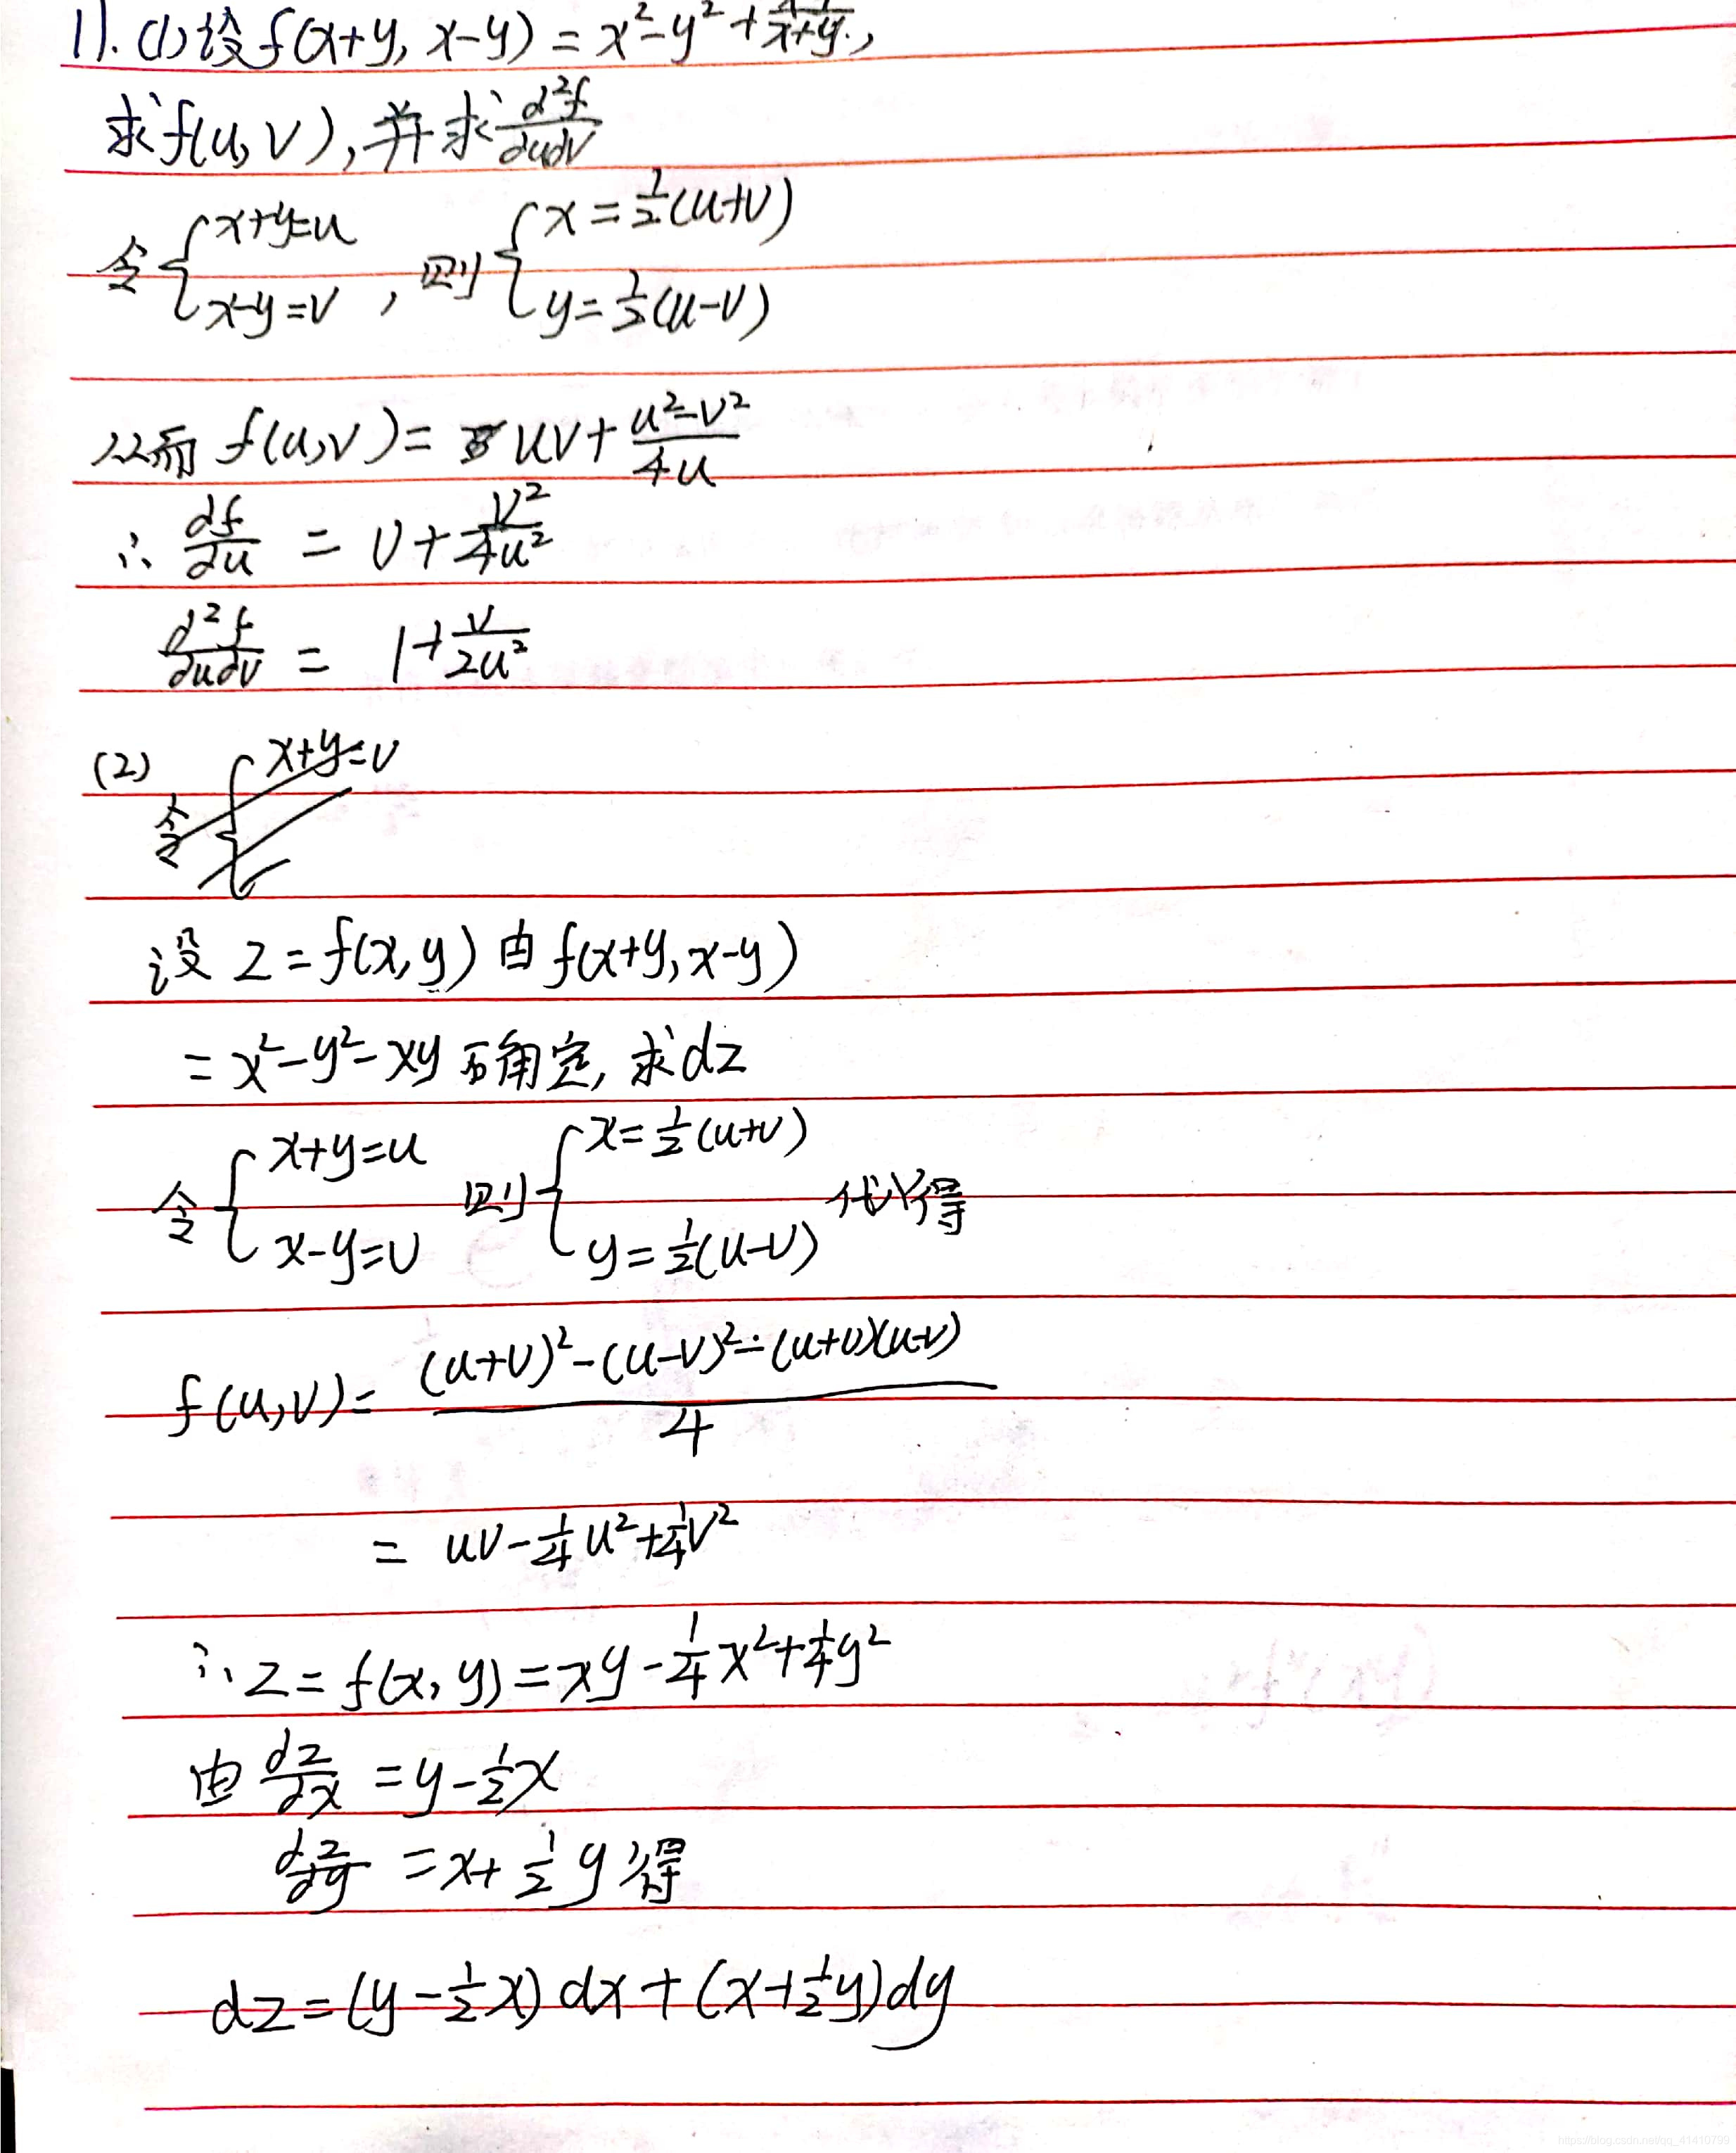 11. (1) 设 f(x+y, x-y) = x²-y²+ /(x+y),
求f(u,v), 并求 ∂²f/∂u∂v
令 { x+y=u, x-y=v , 则 { x=1/2(u+v), y=1/2(u-v)
从而 f(u,v) = uv + (u²-v²)/4u
∴ ∂f/∂u = v + v²/4u²
∂²f/∂u∂v = 1+ v/2u²
(2)
令 { x+y=v
设 z=f(x,y) 由 f(x+y, x-y)
= x²-y²-xy 确定, 求dz
令 { x+y=u, x-y=v 则 { x=1/2(u+v), y=1/2(u-v) 代入得
f(u,v) = ((u+v)²-(u-v)²-(u+v)(u-v))/4
= uv - 1/4u² + 1/4v²
∴ z = f(x,y) = xy - 1/4x² + 1/4y²
由 ∂z/∂x = y - 1/2x
∂z/∂y = x + 1/2y 得
dz = (y - 1/2x)dx + (x + 1/2y)dy
https://blog.csdn.net/qq_41410799